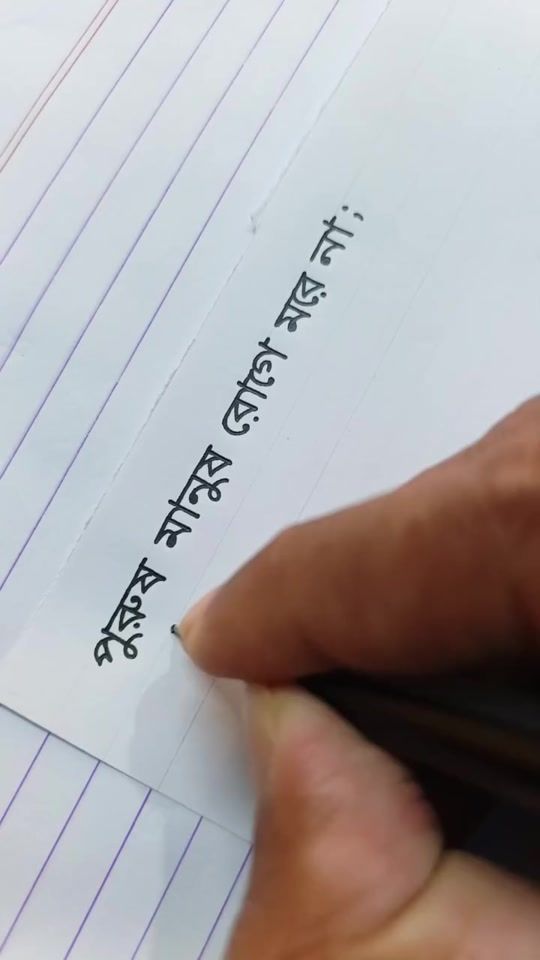 পুরুষ মানুষ রোগে মরে না;